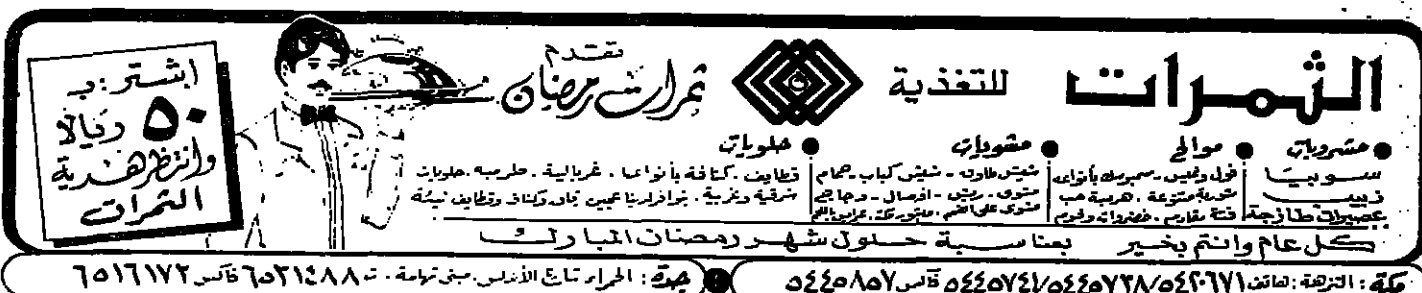 الثمرات
للتغذية
تقدم
ثمرات رمضان
اشتر: بـ
٥٠ ريالا
وانتظر هدية
الثمرات
مشروبات
سوبيا
زبيب
عصيرات طازجة
موالح
فول وتميس . سمبوسك بأنواعه
شوربة متنوعة . هريسة حب
فتة مقادم . خضروات ولحوم
مشويات
شيش طاووق - شيش كباب . حمام
مشوي . ريش - اوصال - دجاج
مشوي على الفحم
حلويات
قطايف . كنافة بأنواعها . غربالية . طرمبه . حلويات
شرقية وغربية . يتوافر لدينا عجين وكناف وقطايف نيئه
كل عام وانتم بخير بمناسبة حلول شهر رمضان المبارك
مكة : النزهة : هاتف ٥٤٢٠٦٧١/٥٤٤٥٧٣٨/٥٤٤٥٧٤١ فاكس ٥٤٤٥٨٥٧
جدة : الحمراء شارع الأندلس . مبنى تهامة . ت ٦٥٣١٤٨٨ فاكس ٦٥١٦١٧٢